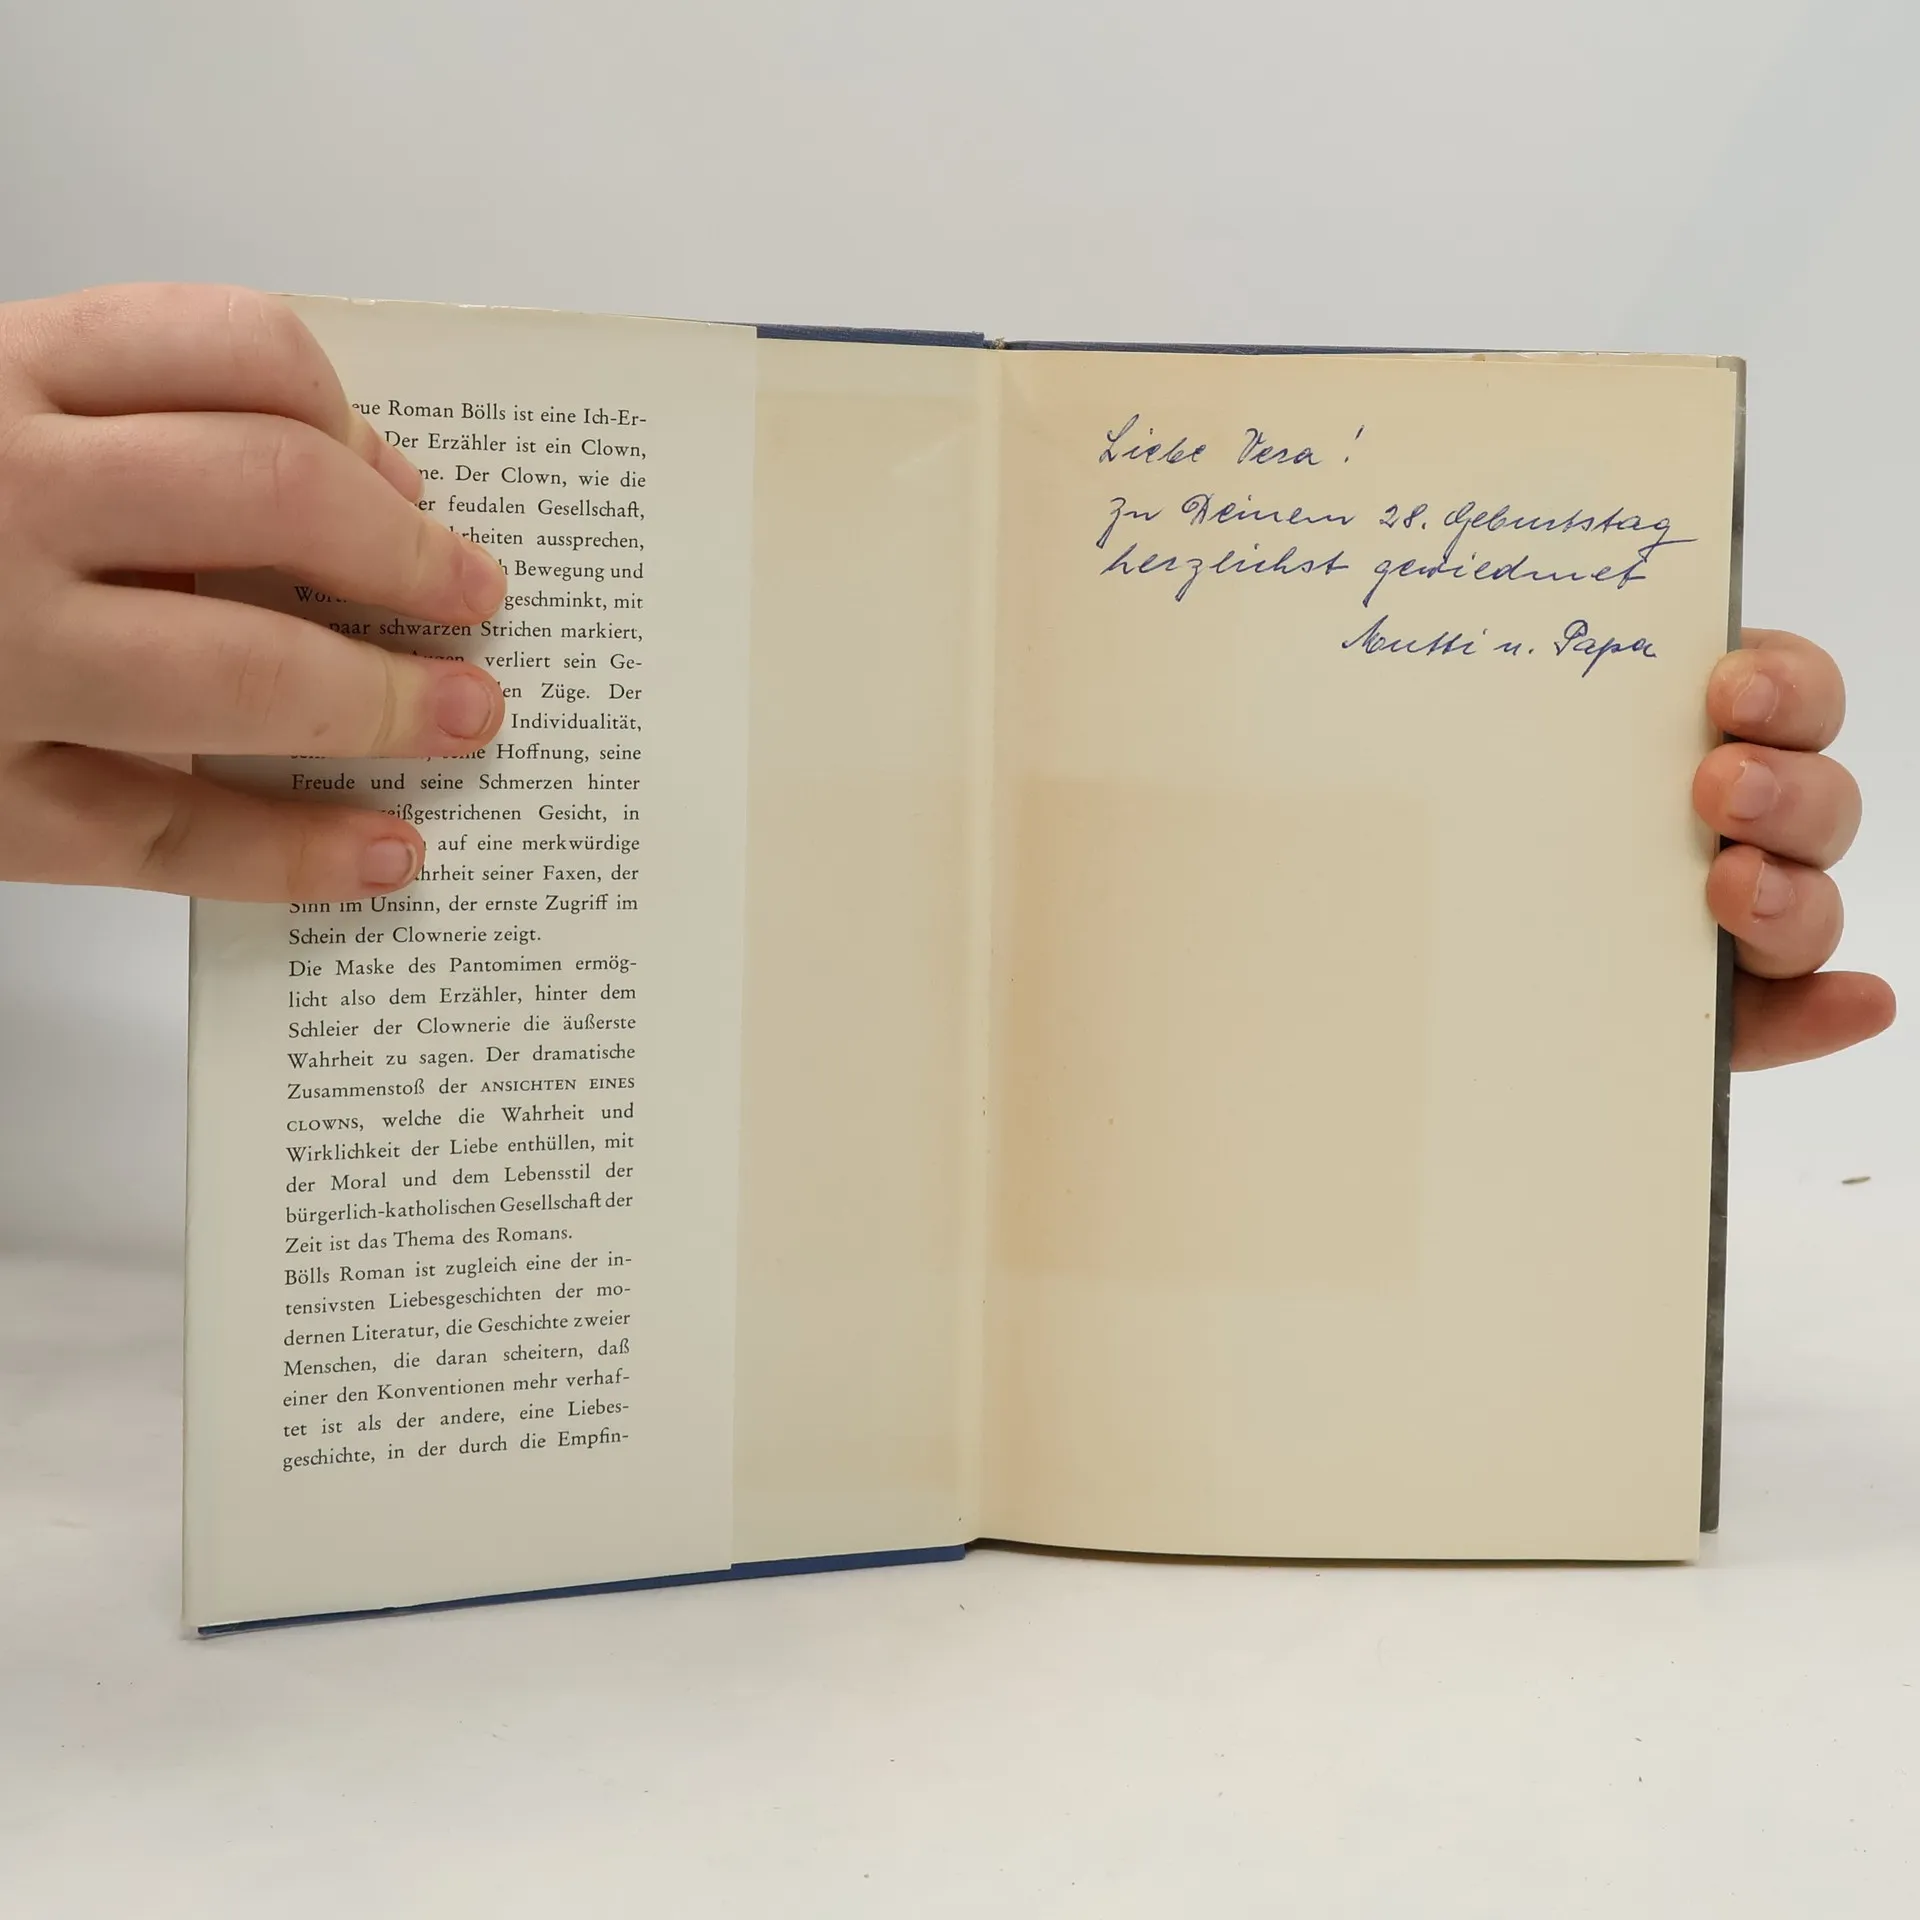 eue Roman Bölls ist eine Ich-Er-
Der Erzähler ist ein Clown,
Der Clown, wie die
feudalen Gesellschaft,
aussprechen,
Bewegung und
geschminkt, mit
paar schwarzen Strichen markiert,
Augen verliert sein Ge-
Züge. Der
Individualität,
Hoffnung, seine
Freude und seine Schmerzen hinter
eißgestrichenen Gesicht, in
auf eine merkwürdige
hrheit seiner Faxen, der
Sinn im Unsinn, der ernste Zugriff im
Schein der Clownerie zeigt.
Die Maske des Pantomimen ermög-
licht also dem Erzähler, hinter dem
Schleier der Clownerie die äußerste
Wahrheit zu sagen. Der dramatische
Zusammenstoß der ANSICHTEN EINES
CLOWNS, welche die Wahrheit und
Wirklichkeit der Liebe enthüllen, mit
der Moral und dem Lebensstil der
bürgerlich-katholischen Gesellschaft der
Zeit ist das Thema des Romans.
Bölls Roman ist zugleich eine der in-
tensivsten Liebesgeschichten der mo-
dernen Literatur, die Geschichte zweier
Menschen, die daran scheitern, daß
einer den Konventionen mehr verhaf-
tet ist als der andere, eine Liebes-
geschichte, in der durch die Empfin-
Liebe Vera!
zu Deinem 28. Geburtstag
herzlichst gewidmet
Mutti u. Papa